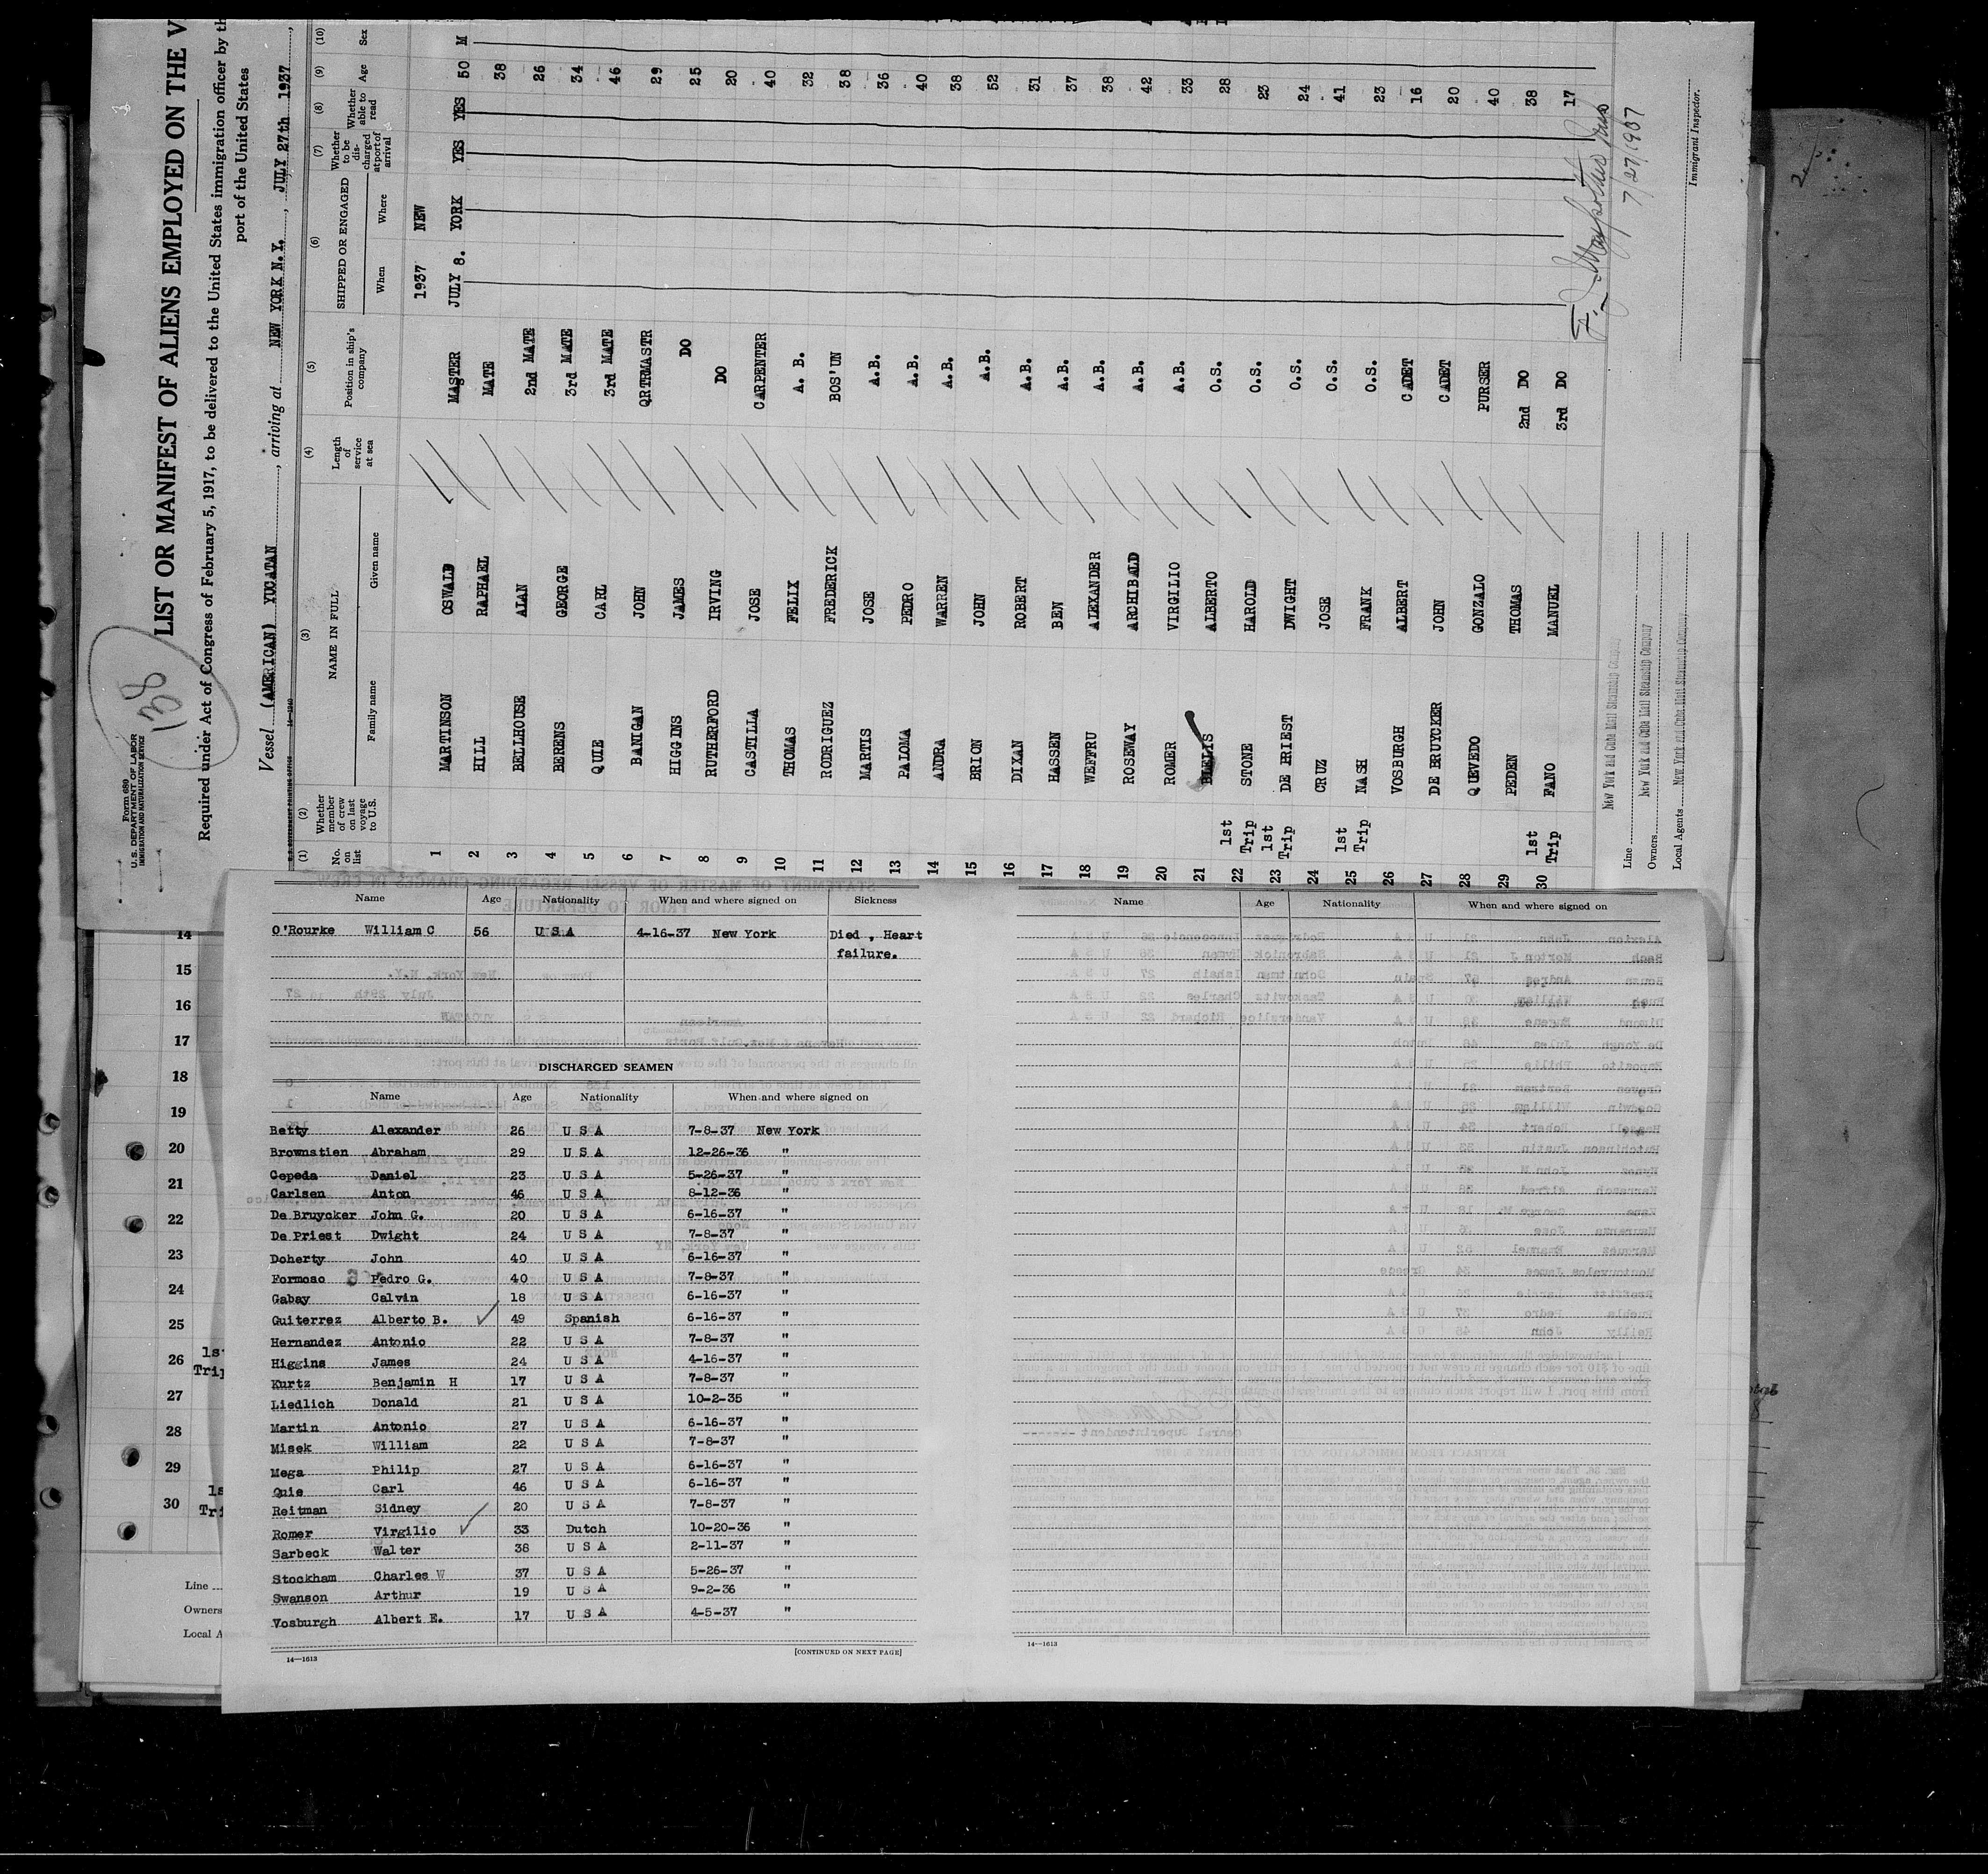 138
Form 680
U. S. DEPARTMENT OF LABOR
IMMIGRATION AND NATURALIZATION SERVICE
LIST OR MANIFEST OF ALIENS EMPLOYED ON THE V
Required under Act of Congress of February 5, 1917, to be delivered to the United States immigration officer by th
port of the United States
Vessel (AMERICAN) YUCATAN, arriving at NEW YORK N.Y., JULY 27th 1937,
(1) (2) (3) (4) (5) (6) (7) (8) (9) (10)
No. on list
Whether member of crew on last voyage to U.S.
NAME IN FULL
Family name Given name
Length of service at sea
Position in ship's company
SHIPPED OR ENGAGED
When Where
Whether to be discharged at port of arrival
Whether able to read
Age
Sex
1937 NEW
1 MARTINSON OSWALD MASTER JULY 8. YORK YES YES 50 M
2 HILL RAPHAEL MATE 38
3 BELLHOUSE ALAN 2nd MATE 26
4 BERENS GEORGE 3rd MATE 34
5 QUIE CARL 3rd MATE 46
6 BANIGAN JOHN QRTRMASTR 29
7 HIGGINS JAMES DO 25
8 RUTHERFORD IRVING DO 20
9 CASTILLA JOSE CARPENTER 40
10 THOMAS FELIX A. B. 32
11 RODRIGUEZ FREDERICK BOS'UN 38
12 MARTIS JOSE A.B. 36
13 PALOMA PEDRO A.B. 40
14 ANDRA WARREN A.B. 38
15 BRION JOHN A.B. 52
16 DIXAN ROBERT A.B. 31
17 HASSEN BEN A.B. 37
18 WEFFRU ALEXANDER A.B. 38
19 ROSEWAY ARCHIBALD A.B. 42
20 ROMER VIRGILIO A.B. 33
21 ALBERTO O.S. 28
22 1st Trip STONE HAROLD O.S. 23
23 1st Trip DE PRIEST DWIGHT O.S. 24
24 CRUZ JOSE O.S. 41
25 1st Trip NASH FRANK O.S. 23
26 VOSBURGH ALBERT CADET 16
27 DE BRUYCKER JOHN CADET 20
28 QUEVEDO GONZALO PURSER 40
29 PEDEN THOMAS 2nd DO 38
30 1st Trip FANO MANUEL 3rd DO 17
7/27/1937
Immigrant Inspector.
Line New York and Cuba Mail Steamship Company
Owners New York and Cuba Mail Steamship Company
Local Agents New York and Cuba Mail Steamship Company
14
15
16
17
18
19
20
21
22
23
24
25
26
27
28
29
30
Line
Owners
Local A
Name Age Nationality When and where signed on Sickness
O'Rourke William C 56 U S A 4-16-37 New York Died , Heart
failure.
DISCHARGED SEAMEN
Name Age Nationality When and where signed on
Betty Alexander 26 U S A 7-8-37 New York
Brownstien Abraham 29 U S A 12-26-36 "
Cepeda Daniel 23 U S A 5-26-37 "
Carlsen Anton 46 U S A 8-12-36 "
De Bruycker John G. 20 U S A 6-16-37 "
De Priest Dwight 24 U S A 7-8-37 "
Doherty John 40 U S A 6-16-37 "
Formoso Pedro G. 40 U S A 7-8-37 "
Gabay Calvin 18 U S A 6-16-37 "
Guiterrez Alberto B. 49 Spanish 6-16-37 "
Hernandez Antonio 22 U S A 7-8-37 "
Higgins James 24 U S A 4-16-37 "
Kurtz Benjamin H 17 U S A 7-8-37 "
Liedlich Donald 21 U S A 10-2-35 "
Martin Antonio 27 U S A 6-16-37 "
Misek William 22 U S A 7-8-37 "
Mega Philip 27 U S A 6-16-37 "
Quie Carl 46 U S A 6-16-37 "
Reitman Sidney 20 U S A 7-8-37 "
Romer Virgilio 33 Dutch 10-20-36 "
Sarbeck Walter 38 U S A 2-11-37 "
Stockham Charles W 37 U S A 5-26-37 "
Swanson Arthur 19 U S A 9-2-36 "
Vosburgh Albert E. 17 U S A 4-5-37 "
14—1613
[CONTINUED ON NEXT PAGE]
Name Age Nationality When and where signed on
14—1613